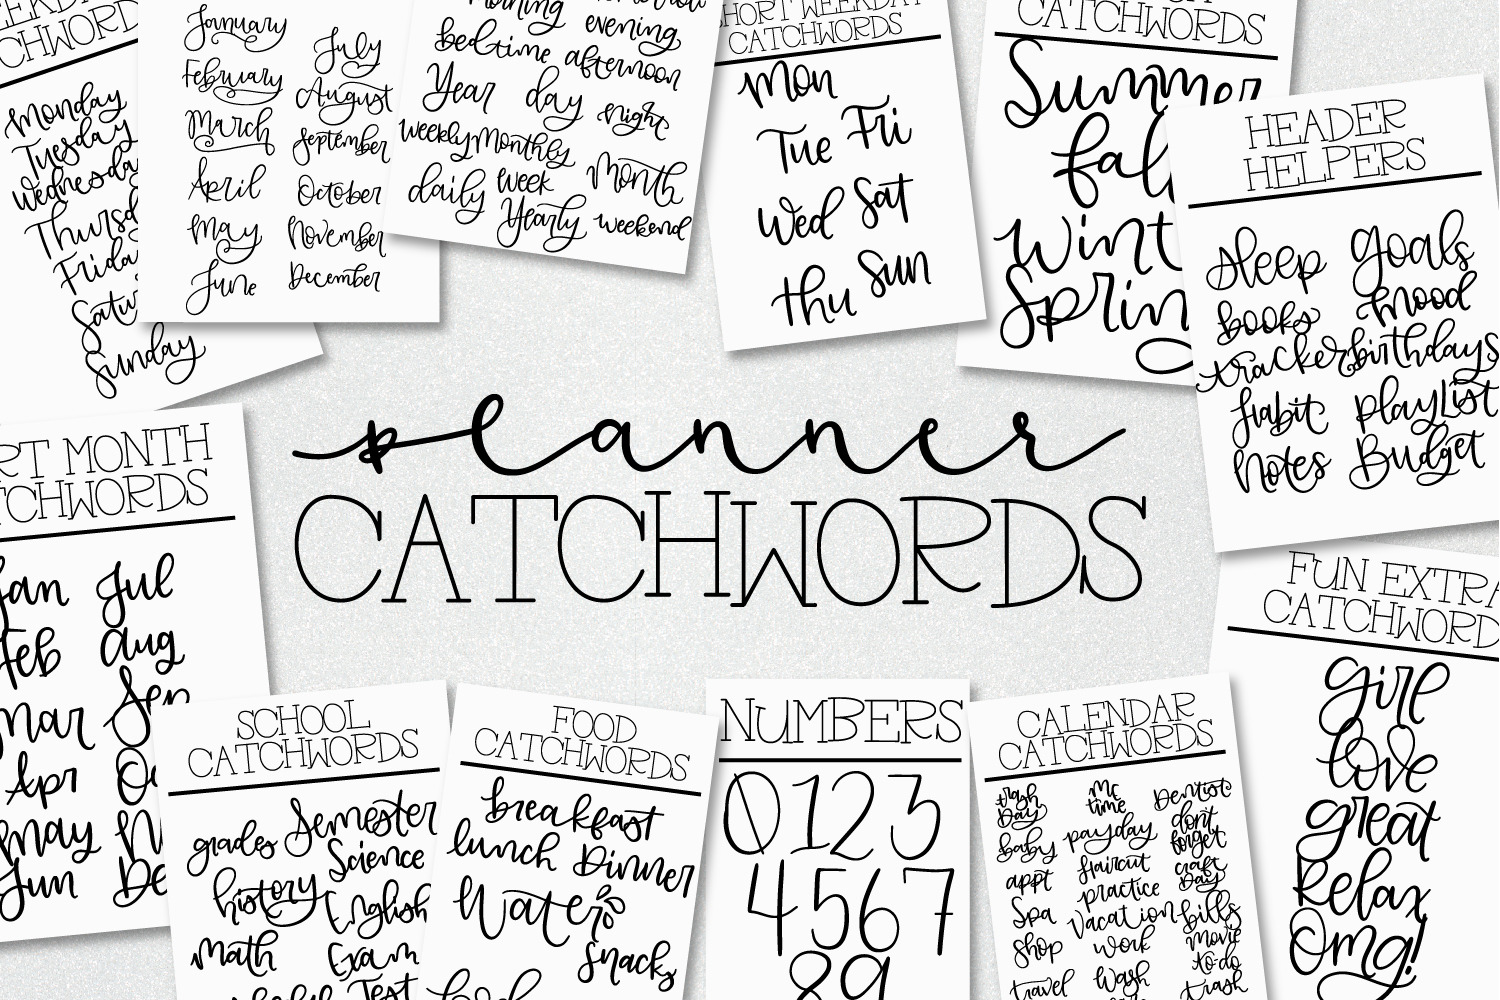 Monday
Tuesday
Wednesday
Friday
Sunday
January
February
March
April
May
June
July
August
September
October
November
December
morning
evening
bedtime
afternoon
Year
day
night
weekly
Monthly
daily
Week
Month
Yearly
weekend
SHORT WEEKDAY
CATCHWORDS
Mon
Tue Fri
Wed Sat
Thu Sun
CATCHWORDS
Summer
fall
HEADER
HELPERS
sleep goals
books mood
tracker birthdays
habit playlist
Notes Budget
planner
CATCHWORDS
MONTH
Jan Jul
Feb Aug
Mar Sep
Apr
May
Jun
SCHOOL
CATCHWORDS
grades Semester
Science
history English
Math Exam
Test
FOOD
CATCHWORDS
breakfast
lunch Dinner
Water
Snacks
NUMBERS
0123
4567
89
CALENDAR
CATCHWORDS
trash Day
me time
Dentist
baby
payday
don't forget
appt
Haircut
craft Day
Spa
practice
bills
Shop
vacation
Movie
travel
work
to-do
Wash
trash
FUN EXTRA
CATCHWORDS
girl
love
great
Relax
Omg!